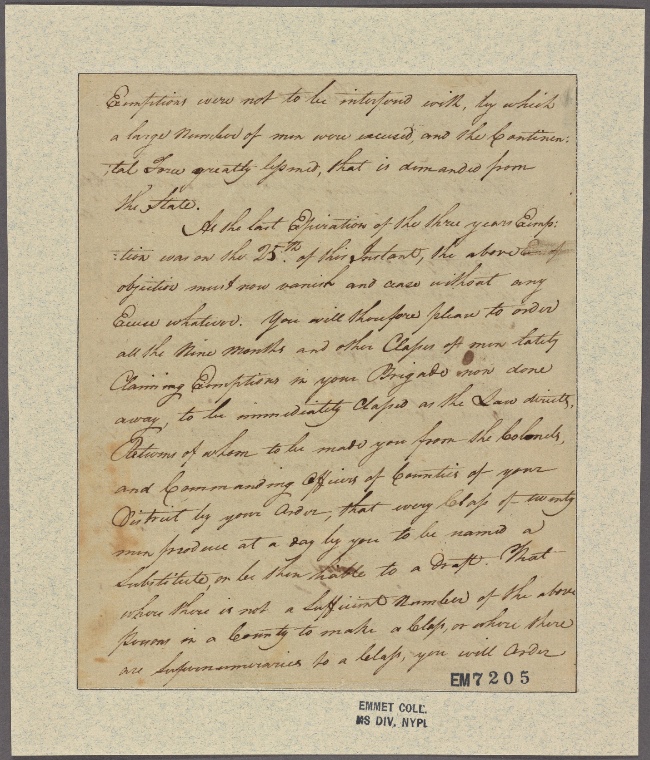 Exemptions were not to be interfered with, by which
a large Number of men were excused, and the Continen:
:tal Force greatly lessened, that is demanded from
the State.
As the last Expiration of the three years Exemp:
:tion was on the 25th. of this Instant, the above
objection must now vanish and cease without any
Excuse whatever. You will therefore please to order
all the Nine Months and other Classes of men lately
Claiming Exemptions in your Brigade now done
away, to be immediately Classed as the Law directs,
Returns of whom to be made you from the Colonels,
and Commanding Officers of Counties of your
District by your order, that every Class of twenty
men produce at a day by you to be named a
Substitute, or be then liable to a Draft. That
where there is not a Sufficient Number of the above
Persons in a County to make a Class, or where there
are Supernumeraries to a Class, you will order
EM7205
EMMET COLL.
MS DIV. NYPL